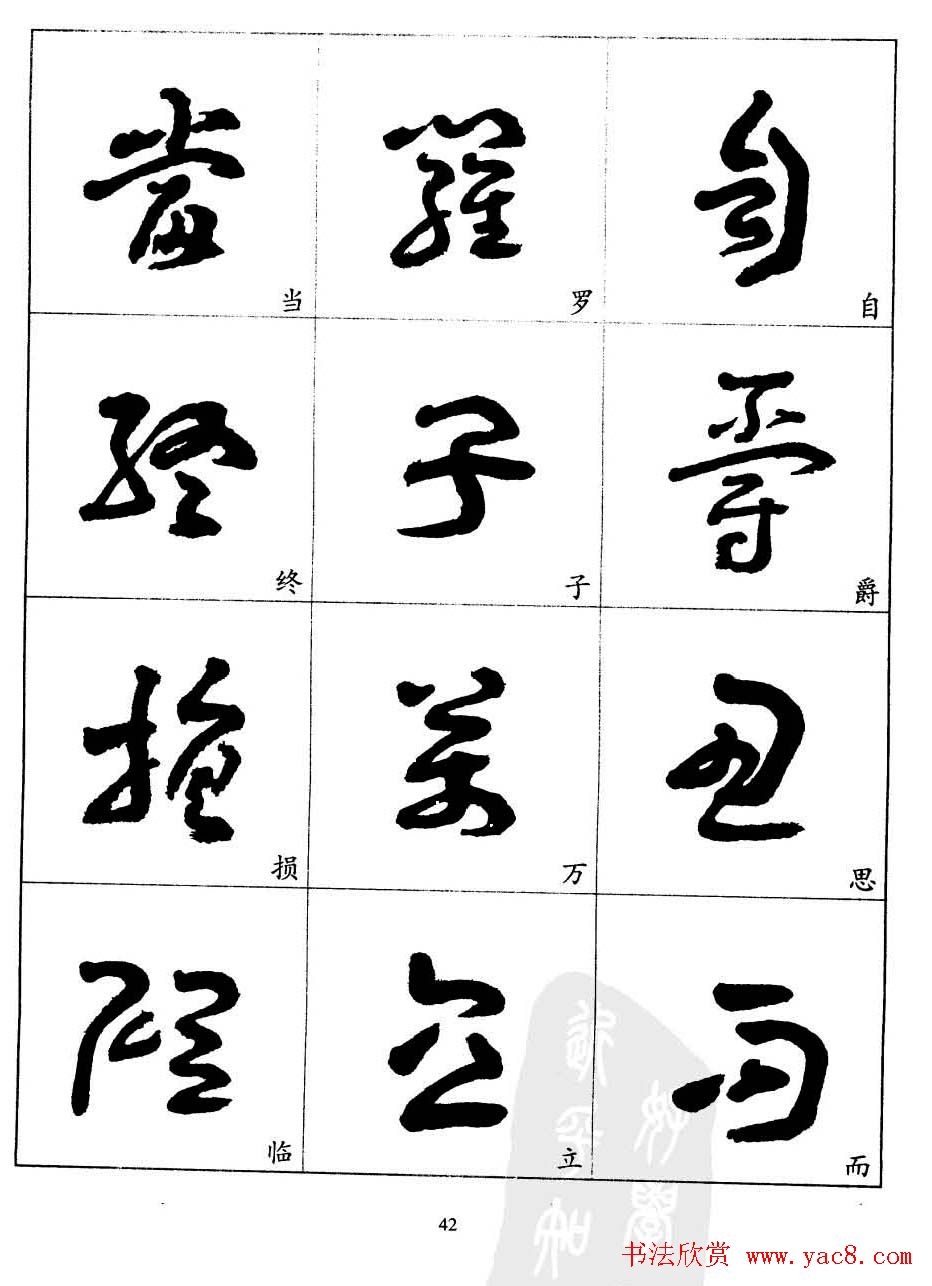 当 罗 自
终 子 爵
损 万 思
临 立 而
42
书法欣赏 www.yac8.com